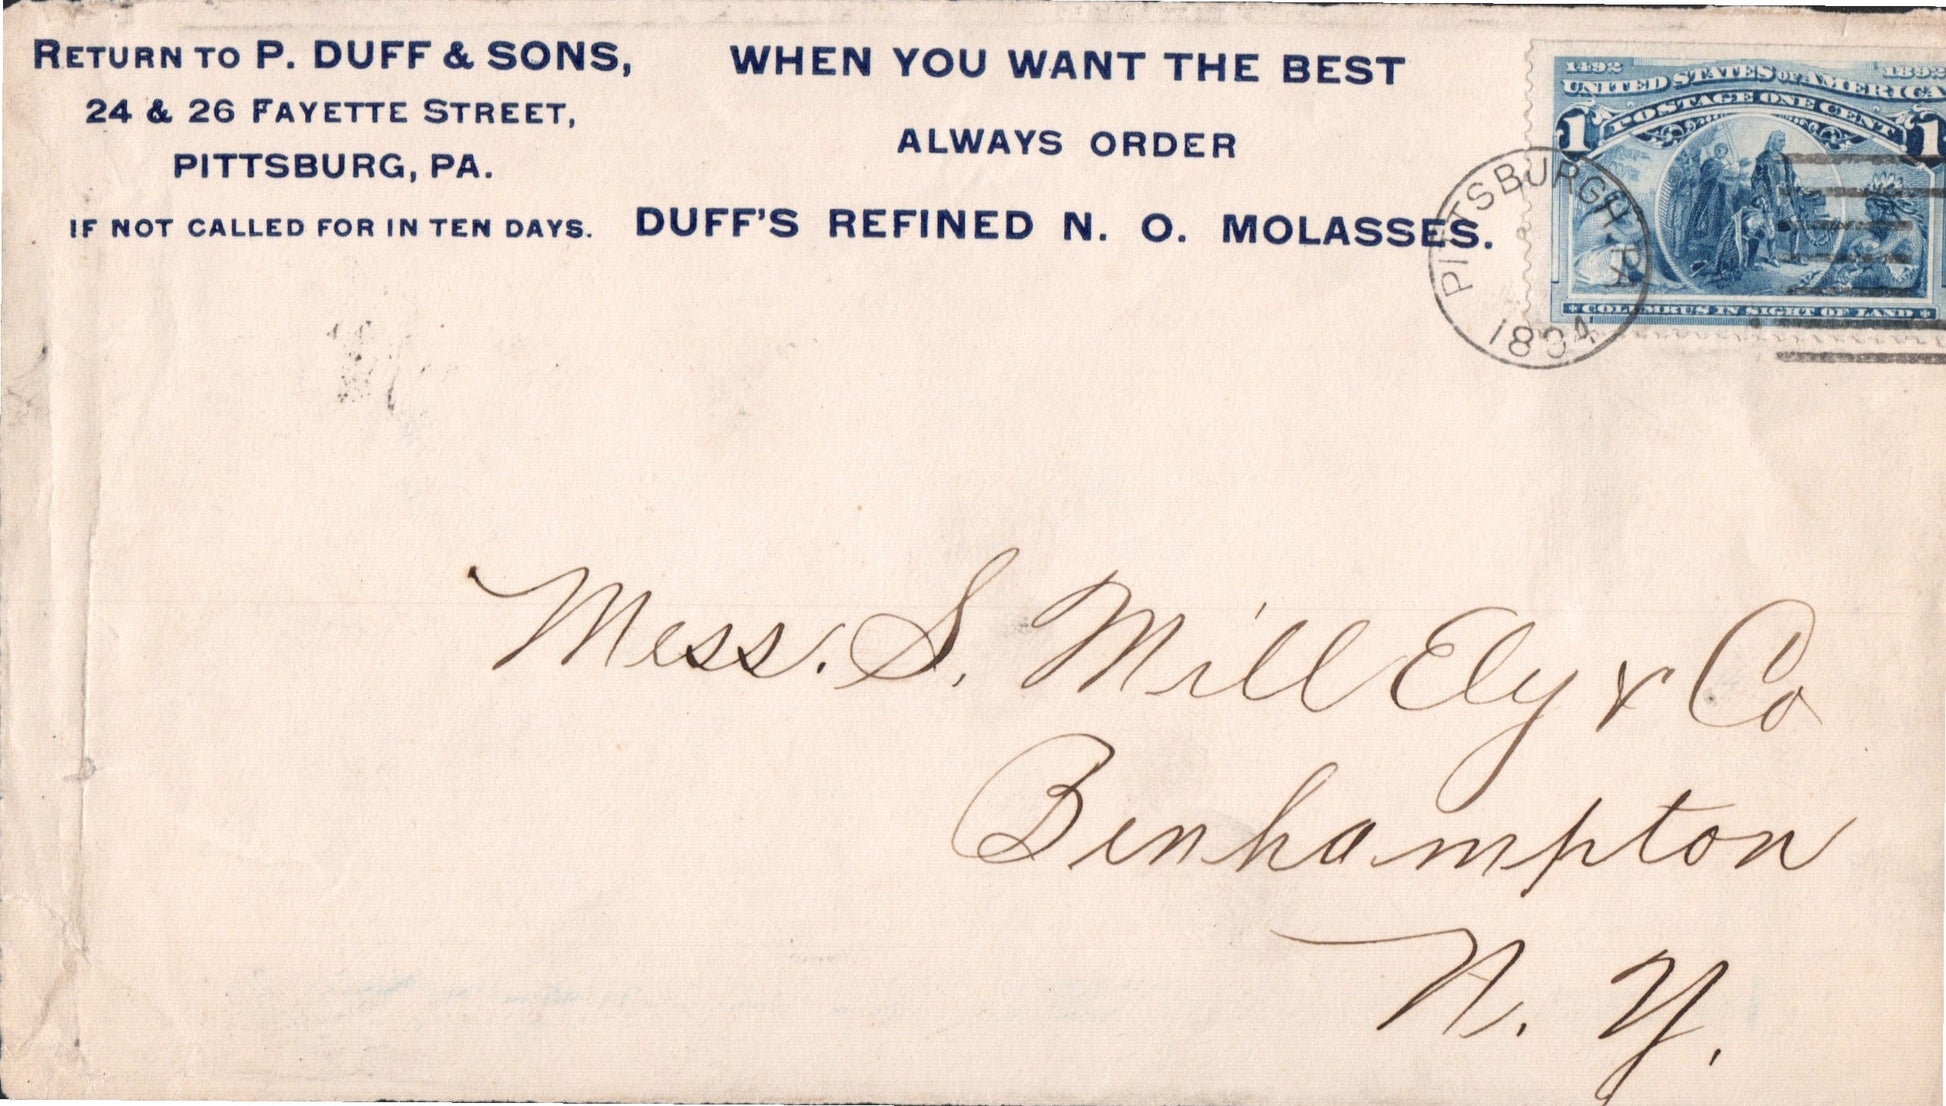 RETURN TO P. DUFF & SONS,
24 & 26 FAYETTE STREET,
PITTSBURG, PA.
IF NOT CALLED FOR IN TEN DAYS.
WHEN YOU WANT THE BEST
ALWAYS ORDER
DUFF'S REFINED N. O. MOLASSES.
1492 1892
UNITED STATES OF AMERICA
POSTAGE ONE CENT
1 1
COLUMBUS IN SIGHT OF LAND
PITTSBURGH, PA
1894
Mess. S. Mill Ely & Co
Binhampton
N. Y.